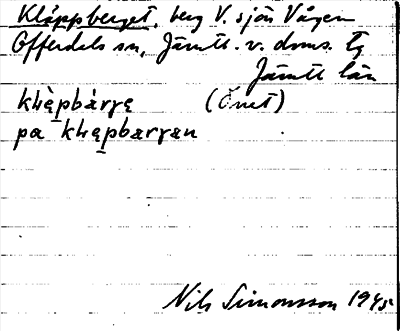 Kläppberget, berg V. sjön Vågen
Offerdals sn, Jämtl. v. doms. tg
Jämtl län
klæ̀pbàrγę (Önet)
pa klæ̀pbarγan
Nils Simonsson 1945